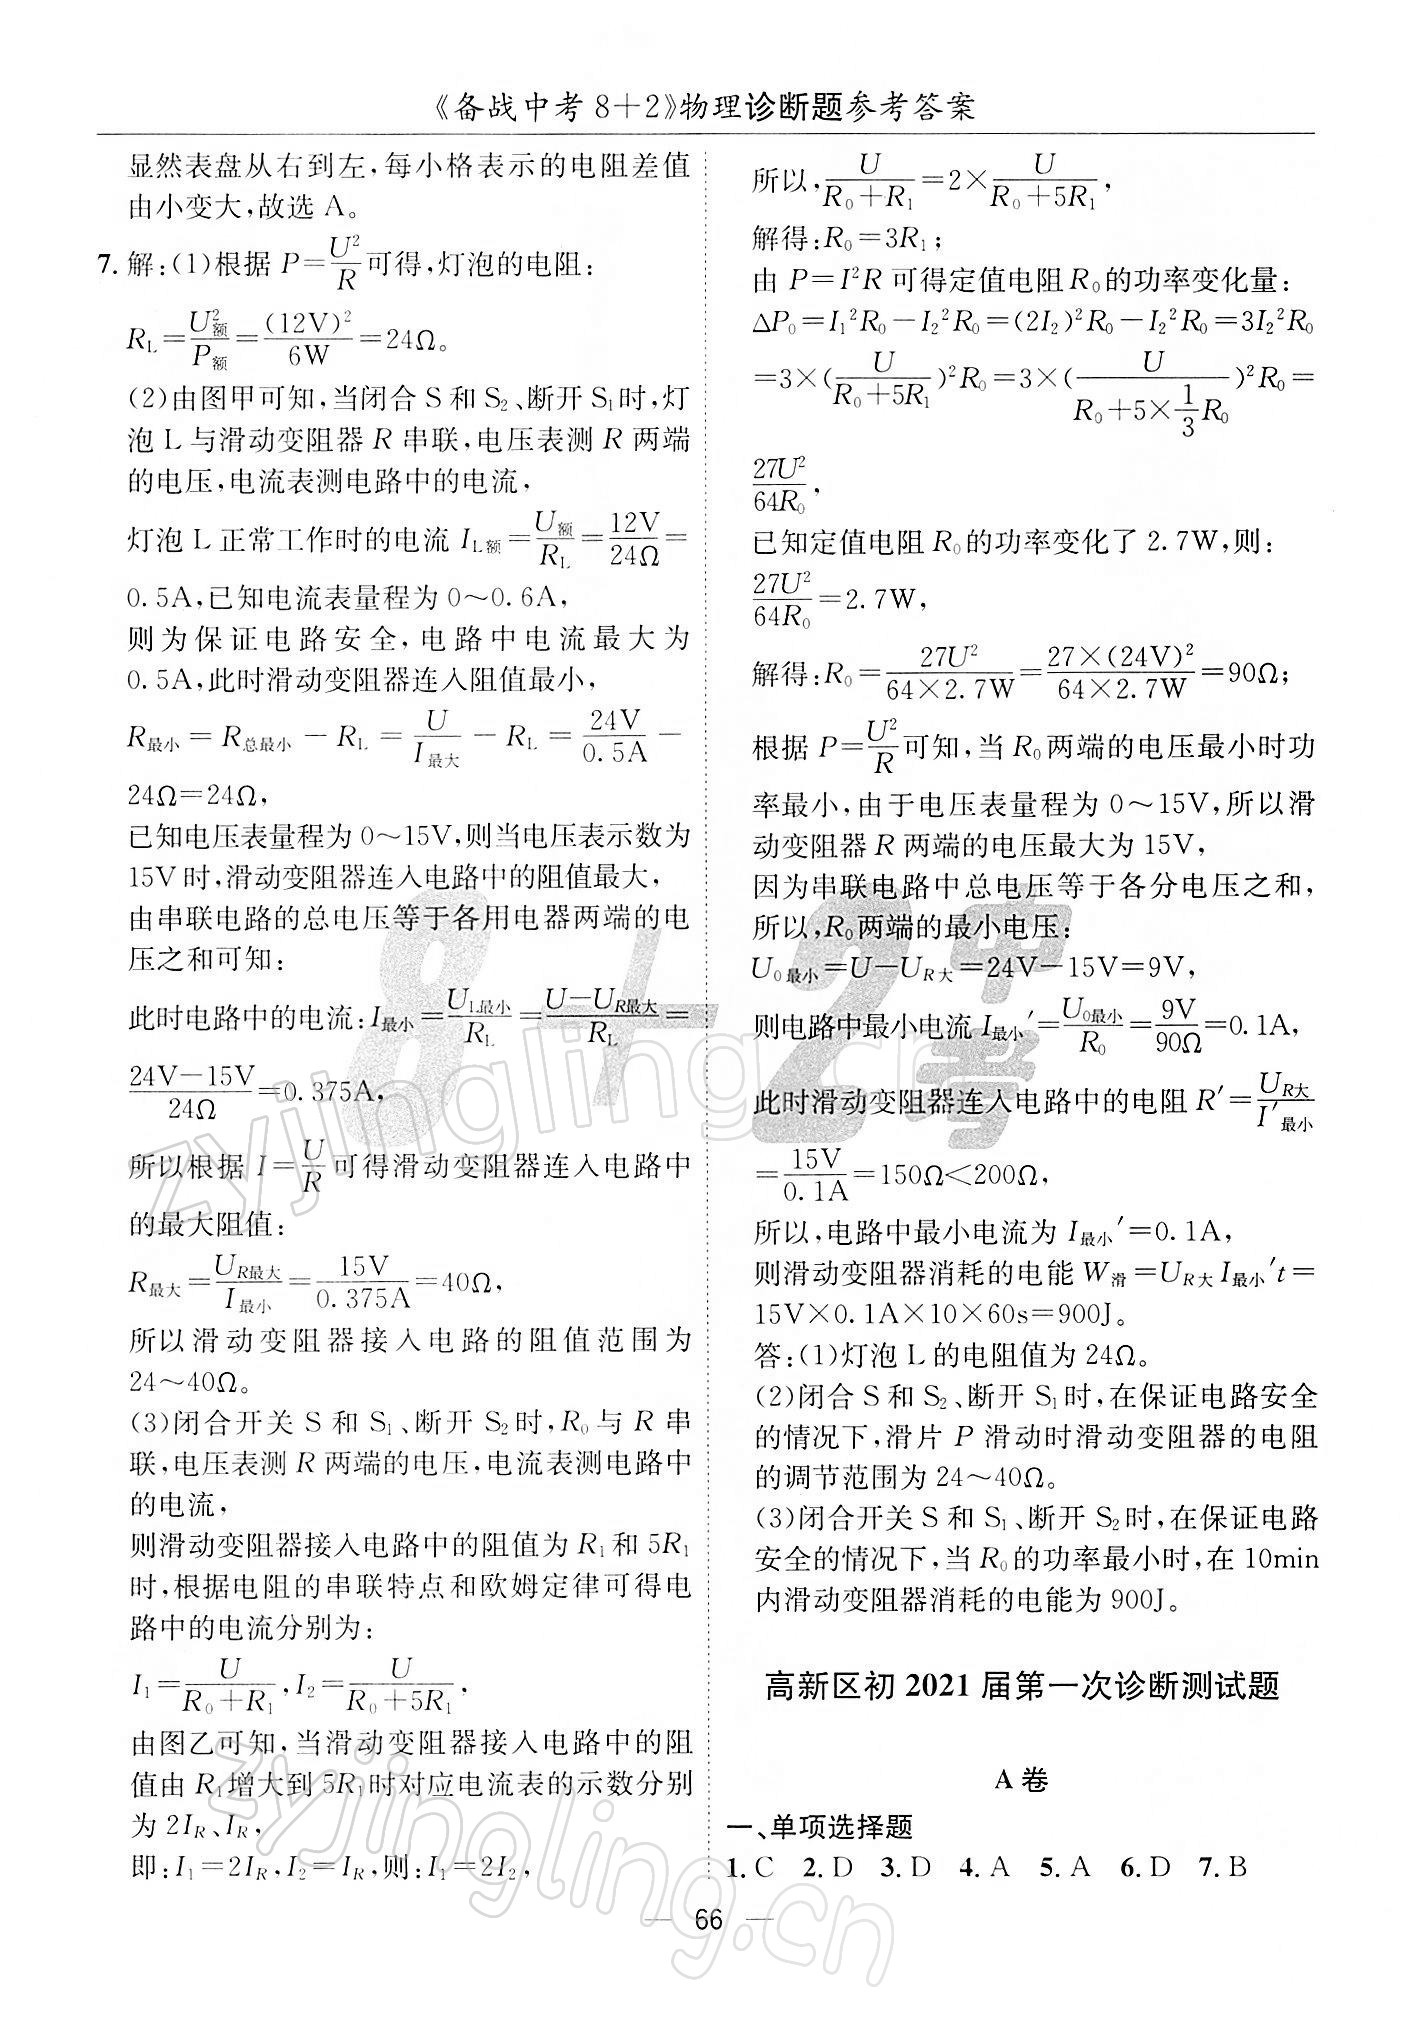 《备战中考8+2》物理诊断题参考答案
显然表盘从右到左,每小格表示的电阻差值
由小变大,故选 A。
7. 解:(1)根据 P=U²/R可得,灯泡的电阻:
R_L=U²_额/P_额=(12V)²/6W=24Ω。
(2)由图甲可知,当闭合 S 和 S₂、断开 S₁时,灯
泡 L 与滑动变阻器 R 串联,电压表测 R 两端
的电压,电流表测电路中的电流,
灯泡 L 正常工作时的电流 I_L额=U_额/R_L=12V/24Ω=
0.5A,已知电流表量程为 0～0.6A,
则为保证电路安全,电路中电流最大为
0.5A,此时滑动变阻器连入阻值最小,
R_最小=R_总最小-R_L=U/I_最大-R_L=24V/0.5A-
24Ω=24Ω,
已知电压表量程为 0～15V,则当电压表示数为
15V 时,滑动变阻器连入电路中的阻值最大,
由串联电路的总电压等于各用电器两端的电
压之和可知:
此时电路中的电流:I_最小=U_L最小/R_L=(U-U_R最大)/R_L=
(24V-15V)/24Ω=0.375A,
所以根据 I=U/R可得滑动变阻器连入电路中
的最大阻值:
R_最大=U_R最大/I_最小=15V/0.375A=40Ω,
所以滑动变阻器接入电路的阻值范围为
24～40Ω。
(3)闭合开关 S 和 S₁、断开 S₂时,R₀与 R 串
联,电压表测 R 两端的电压,电流表测电路中
的电流,
则滑动变阻器接入电路中的阻值为 R₁和 5R₁
时,根据电阻的串联特点和欧姆定律可得电
路中的电流分别为:
I₁=U/(R₀+R₁),I₂=U/(R₀+5R₁),
由图乙可知,当滑动变阻器接入电路中的阻
值由 R₁增大到 5R₁时对应电流表的示数分别
为 2I_R、I_R,
即:I₁=2I_R,I₂=I_R,则:I₁=2I₂,
所以,U/(R₀+R₁)=2×U/(R₀+5R₁),
解得:R₀=3R₁;
由 P=I²R 可得定值电阻 R₀的功率变化量:
△P₀=I₁²R₀-I₂²R₀=(2I₂)²R₀-I₂²R₀=3I₂²R₀
=3×(U/(R₀+5R₁))²R₀=3×(U/(R₀+5×1/3R₀))²R₀=
27U²/64R₀,
已知定值电阻 R₀的功率变化了 2.7W,则:
27U²/64R₀=2.7W,
解得:R₀=27U²/(64×2.7W)=27×(24V)²/(64×2.7W)=90Ω;
根据 P=U²/R可知,当 R₀两端的电压最小时功
率最小,由于电压表量程为 0～15V,所以滑
动变阻器 R 两端的电压最大为 15V,
因为串联电路中总电压等于各分电压之和,
所以,R₀两端的最小电压:
U_0最小=U-U_R大=24V-15V=9V,
则电路中最小电流 I_最小′=U_0最小/R₀=9V/90Ω=0.1A,
此时滑动变阻器连入电路中的电阻 R′=U_R大/I′_最小
=15V/0.1A=150Ω<200Ω,
所以,电路中最小电流为 I_最小′=0.1A,
则滑动变阻器消耗的电能 W_滑=U_R大 I_最小′t=
15V×0.1A×10×60s=900J。
答:(1)灯泡 L 的电阻值为 24Ω。
(2)闭合 S 和 S₂、断开 S₁时,在保证电路安全
的情况下,滑片 P 滑动时滑动变阻器的电阻
的调节范围为 24～40Ω。
(3)闭合开关 S 和 S₁、断开 S₂时,在保证电路
安全的情况下,当 R₀的功率最小时,在 10min
内滑动变阻器消耗的电能为 900J。
高新区初 2021 届第一次诊断测试题
A 卷
一、单项选择题
1. C 2. D 3. D 4. A 5. A 6. D 7. B
— 66 —
8+2
中考
zyjingling.cn
zyjingling.cn